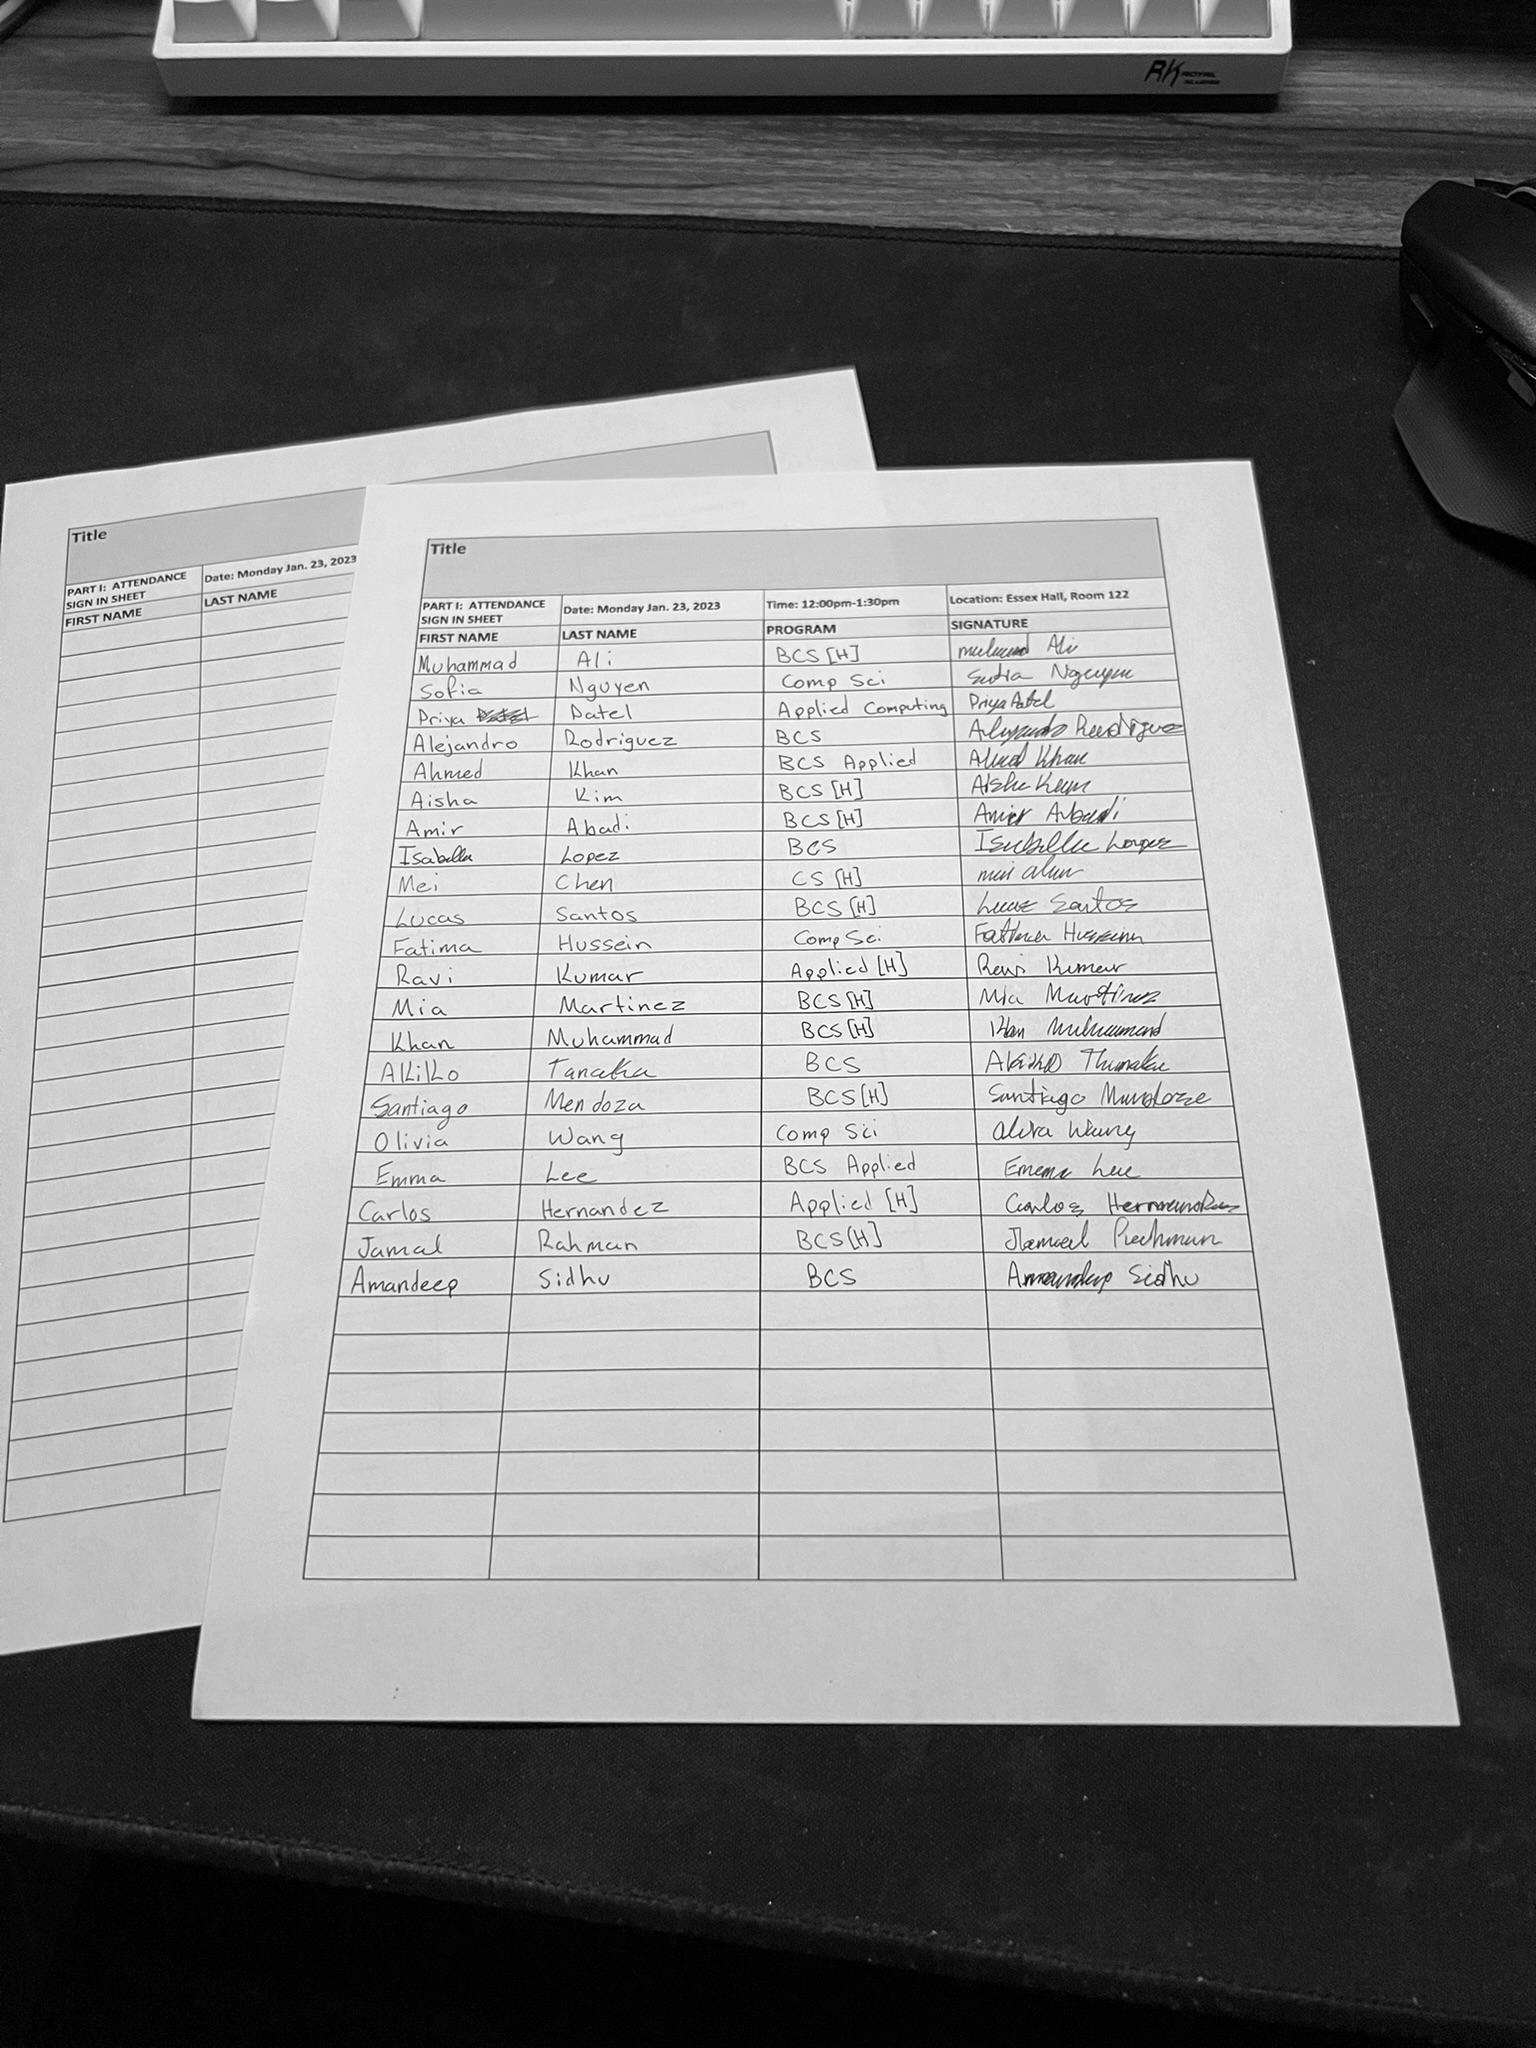 RK ROYAL KLUDGE
Title
PART I: ATTENDANCE SIGN IN SHEET Date: Monday Jan. 23, 2023
FIRST NAME LAST NAME
Title
PART I: ATTENDANCE SIGN IN SHEET Date: Monday Jan. 23, 2023 Time: 12:00pm-1:30pm Location: Essex Hall, Room 122
FIRST NAME LAST NAME PROGRAM SIGNATURE
Muhammad Ali BCS [H] Ali
Sofia Nguyen Comp Sci Nguyen
Priya Patel Applied Computing Priya Patel
Alejandro Rodriguez BCS Alejandro Rodriguez
Ahmed Khan BCS Applied Ahmed Khan
Aisha Kim BCS [H] Aisha
Amir Abadi BCS [H] Amir Abadi
Isabella Lopez BCS Isabella Lopez
Mei Chen CS [H]
Lucas Santos BCS [H] Lucas Santos
Fatima Hussein Comp Sci Fatima Hussein
Ravi Kumar Applied [H] Ravi Kumar
Mia Martinez BCS [H] Mia Martinez
Khan Muhammad BCS [H] Khan Muhammad
Akiko Tanaka BCS Akiko
Santiago Mendoza BCS [H] Santiago
Olivia Wang Comp Sci Wang
Emma Lee BCS Applied Emema Lee
Carlos Hernandez Applied [H] Carlos
Jamal Rahman BCS [H] Rahman
Amandeep Sidhu BCS Amandeep Sidhu